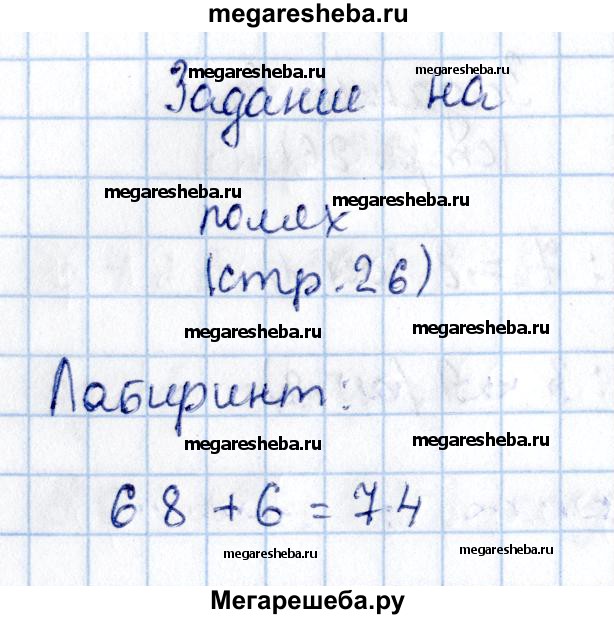 megaresheba.ru
megaresheba.ru megaresheba.ru
Задание на
megaresheba.ru megaresheba.ru
полях
(стр. 26)
megaresheba.ru megaresheba.ru
Лабиринт:
megaresheba.ru megaresheba.ru
68 + 6 = 74
megaresheba.ru megaresheba.ru
Мегарешеба.ру